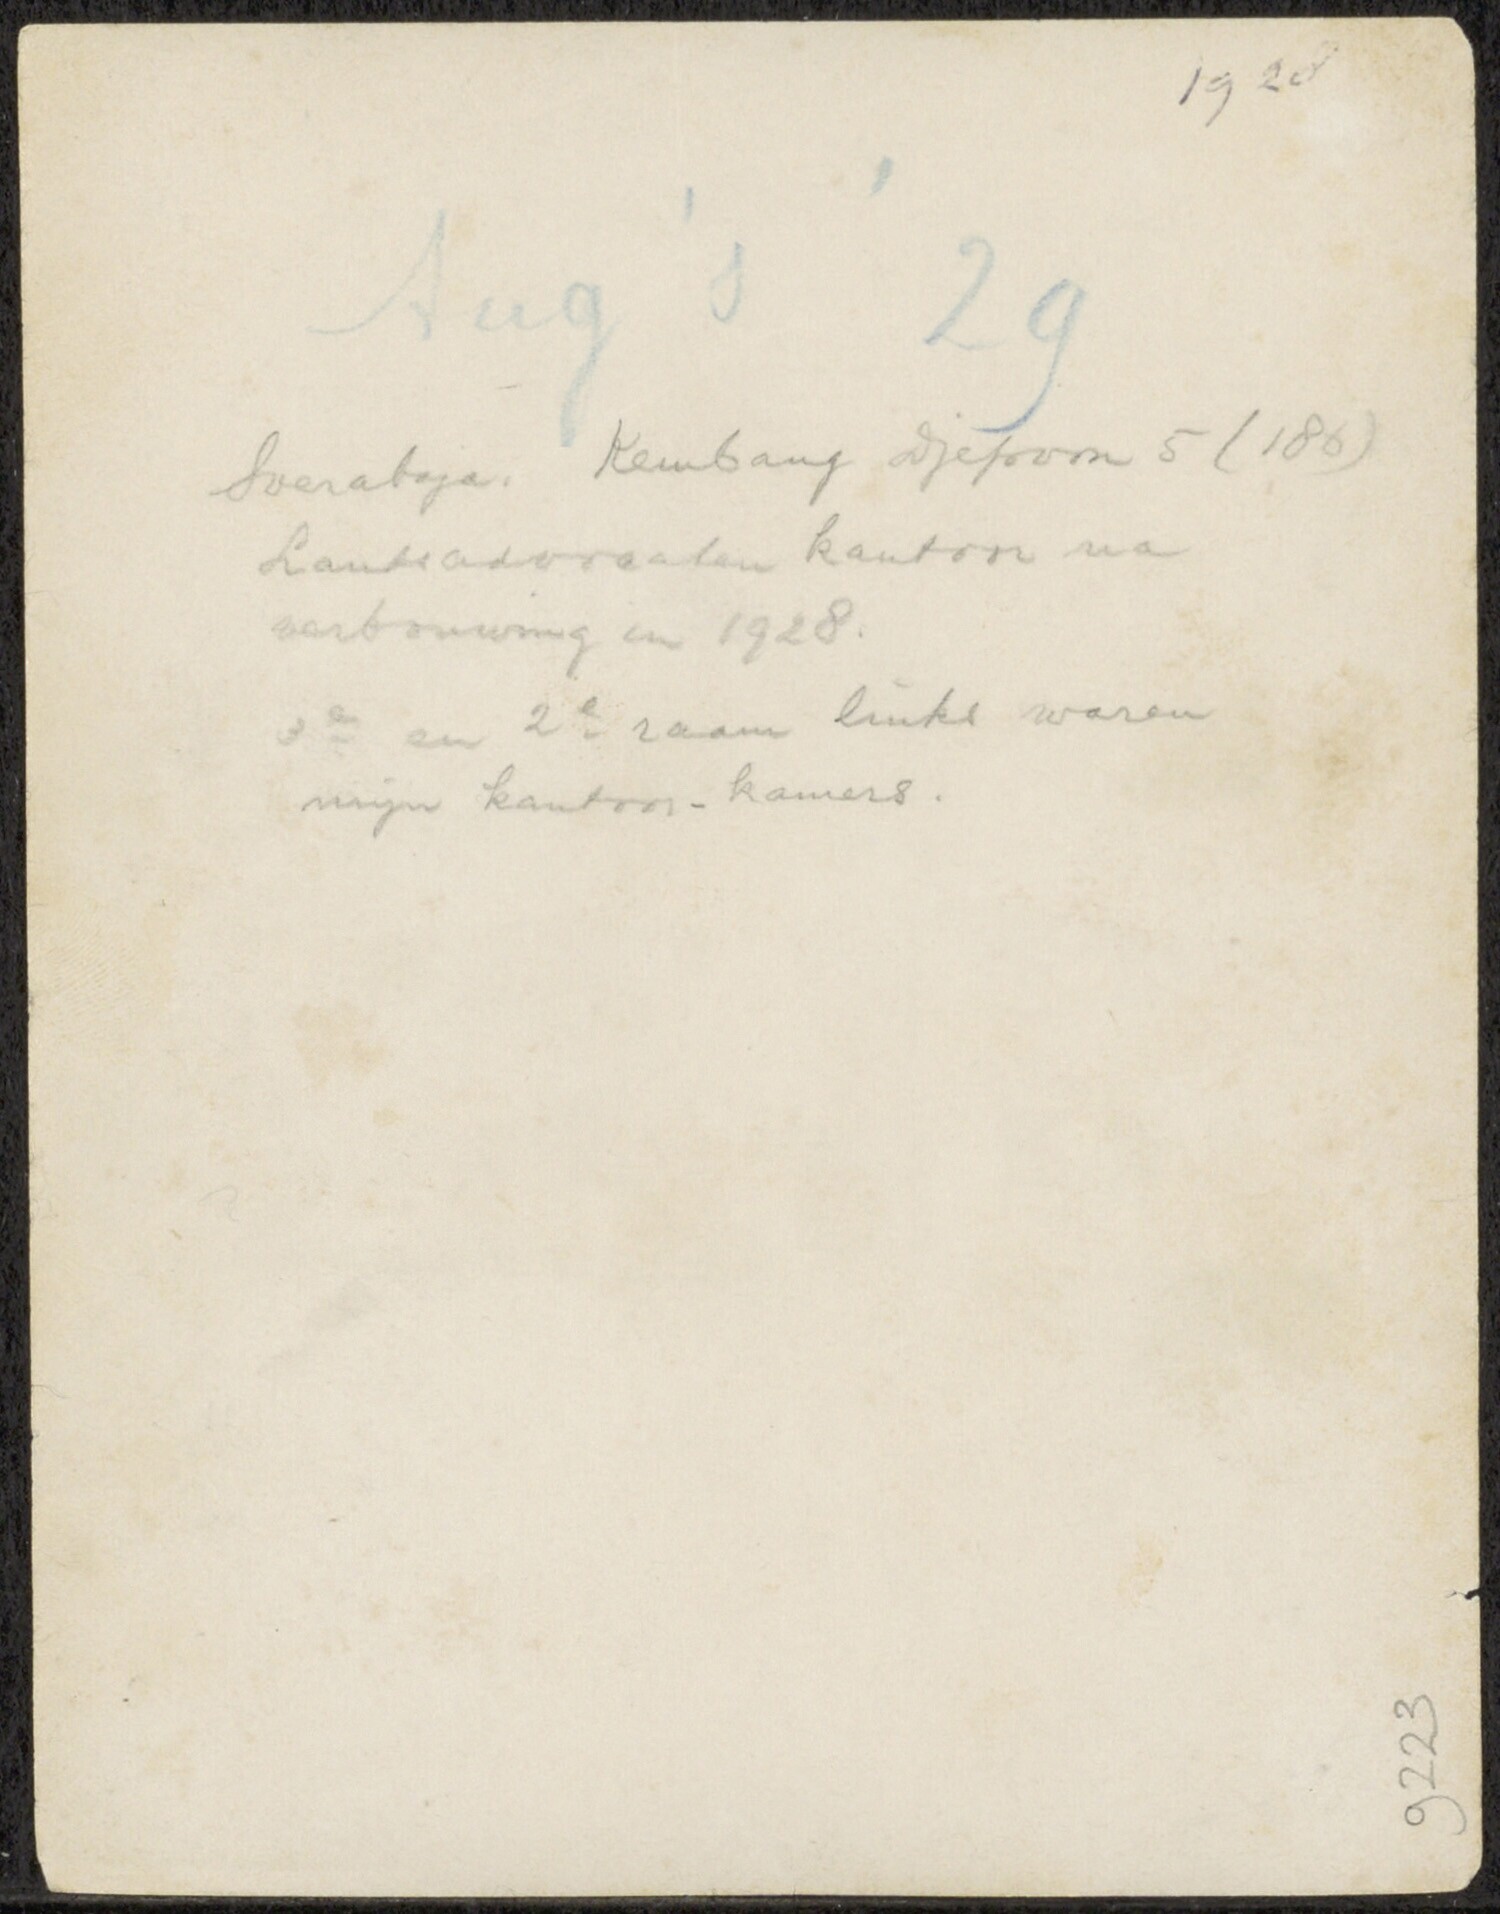 1928
Aug's '29
Soerabaja. Kembang Djepoen 5 (186)
Landsadvocaten kantoor na
verbouwing in 1928.
3e en 2e raam links waren
mijn kantoor-kamers.
9223